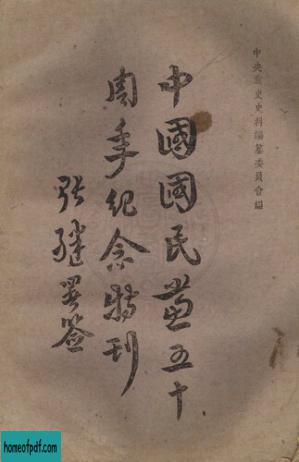 中央黨史史料編纂委員會編
中國國民黨五十
周年紀念特刊
張繼署簽
homeofpdf.com